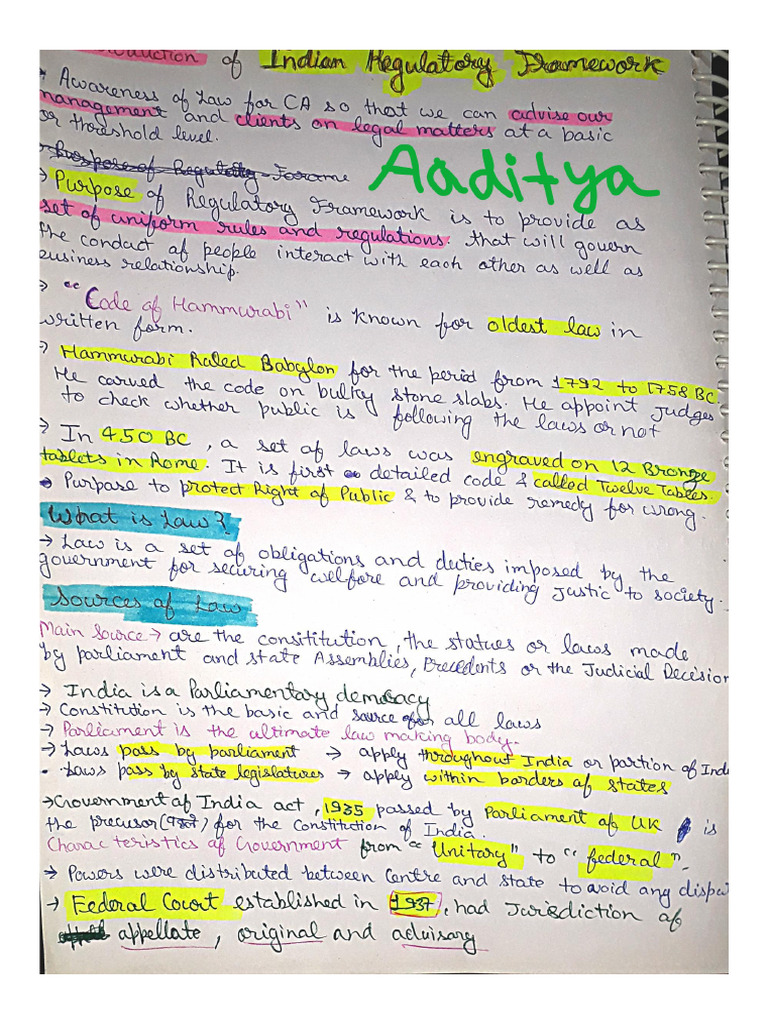 of Indian Regulatory Framework
Awareness of Law for CA so that we can advise our
management and clients on legal matters at a basic
or threshold level.
Purpose of Regulatoty Farame
Aaditya
→ Purpose of Regulatory Framework is to provide as
set of uniform rules and regulations. that will govern
the conduct of people interact with each other as well as
business relationship.
→ "Code of Hammurabi" is known for oldest law in
written form.
→ Hammurabi Ruled Babylon for the period from 1792 to 1758 BC.
He carved the code on bulky stone slabs. He appoint judges
to check whether public is following the laws or not
→ In 450 BC, a set of laws was engraved on 12 Bronze
tablets in Rome. It is first detailed code & called Twelve Tables.
Purpase to protect Right of Public & to provide remedy for wrong.
What is Law?
→ Law is a set of obligations and duties imposed by the
government for securing welfare and providing Justic to society.
Sources of Law
Main Source → are the consititution, the statues or laws made
by parliament and state Assemblies, Precedents or the Judicial Decision
→ India is a Parliamentary democacy
→ Constitution is the basic and source of all laws
→ Parliament is the ultimate law making body.
→ Laws pass by parliament → apply throughout India or partion of Ind
• Laws pass by state legislatures → apply within borders of states
→ Government of India act, 1935 passed by Parliament of UK is
the precusor (पहले) for the Constitution of India.
Characteristics of Government from "Unitary" to "federal".
→ Powers were distributed between Centre and state to avoid any disput
→ Federal Court established in 1937, had Jurisdiction of
appellate, original and advisary